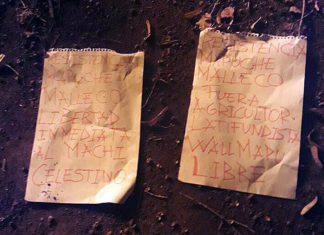 MALLECO
LIBERTAD
INMEDIATA
AL MACHI
CELESTINO
RESISTENCIA
MAPUCHE
MALLECO
FUERA
AGRICULTOR
LATIFUNDISTA
WALLMAPU
LIBRE